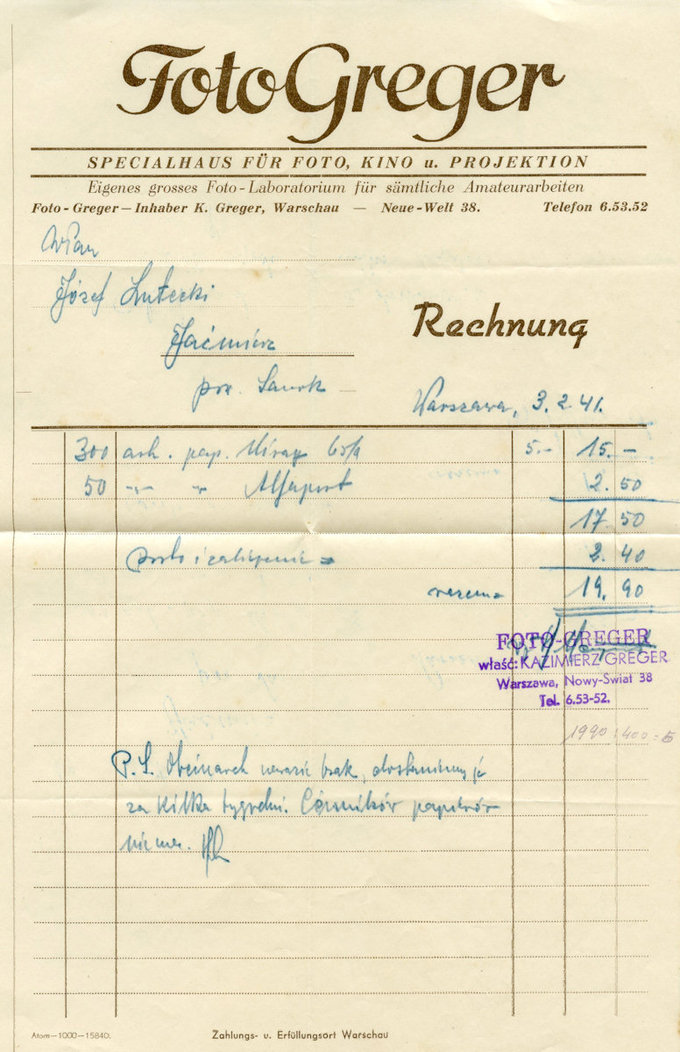 Foto Greger
SPECIALHAUS FÜR FOTO, KINO u. PROJEKTION
Eigenes grosses Foto-Laboratorium für sämtliche Amateurarbeiten
Foto-Greger — Inhaber K. Greger, Warschau — Neue-Welt 38. Telefon 6.53.52
WPan
Józef Lutecki
Rechnung
pow. Sanok
Warszawa, 3.2.41.
300 ark. pap. Mirax 5.- 15.-
50 -"- " 2.50
17.50
porto i 2.40
razem 19.90
FOTO-GREGER
właść: KAZIMIERZ GREGER
Warszawa, Nowy-Świat 38
Tel. 6.53-52.
1990:400=5
P.S. Obcinarek narazie brak, dostaniemy je
za kilka tygodni. Cenników papierów
niema.
Atom—1000—15840.
Zahlungs- u. Erfüllungsort Warschau